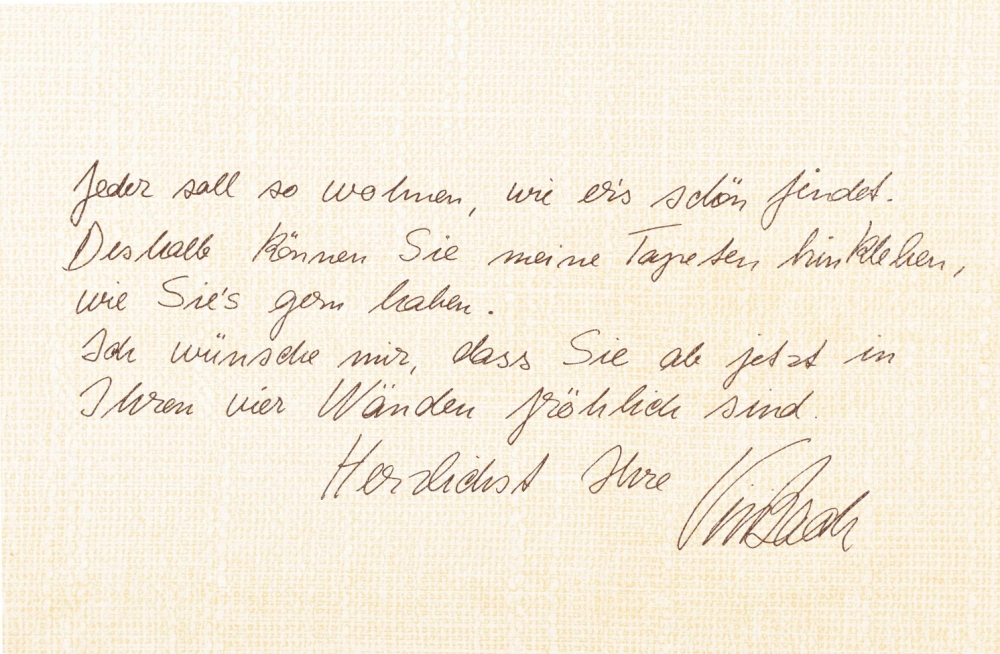 Jeder soll so wohnen, wie er's schön findet.
Deshalb können Sie meine Tapeten hinkleben,
wie Sie's gern haben.
Ich wünsche mir, dass Sie ab jetzt in
Ihren vier Wänden fröhlich sind.
Herzlichst Ihre